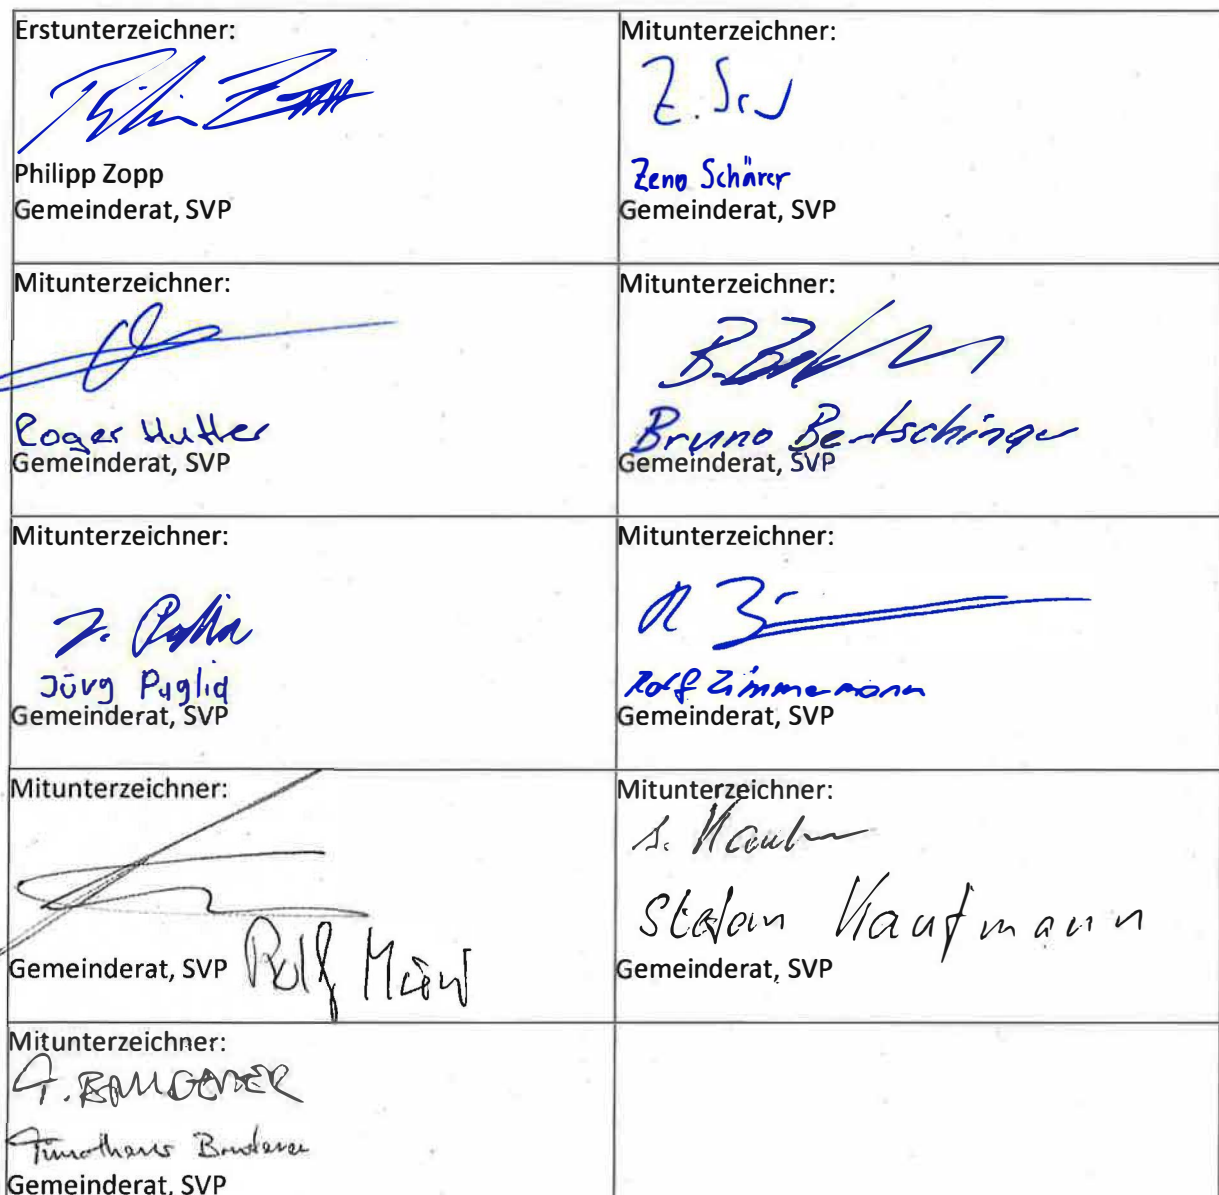 Erstunterzeichner:
Philipp Zopp
Gemeinderat, SVP
Mitunterzeichner:
Z. Sch
Zeno Schärer
Gemeinderat, SVP
Mitunterzeichner:
Roger Hutter
Gemeinderat, SVP
Mitunterzeichner:
Bruno Bertschinger
Gemeinderat, SVP
Mitunterzeichner:
Jürg Puglia
Gemeinderat, SVP
Mitunterzeichner:
Rolf Zimmermann
Gemeinderat, SVP
Mitunterzeichner:
Gemeinderat, SVP Rolf
Mitunterzeichner:
Stefan Kaufmann
Gemeinderat, SVP
Mitunterzeichner:
Gemeinderat, SVP